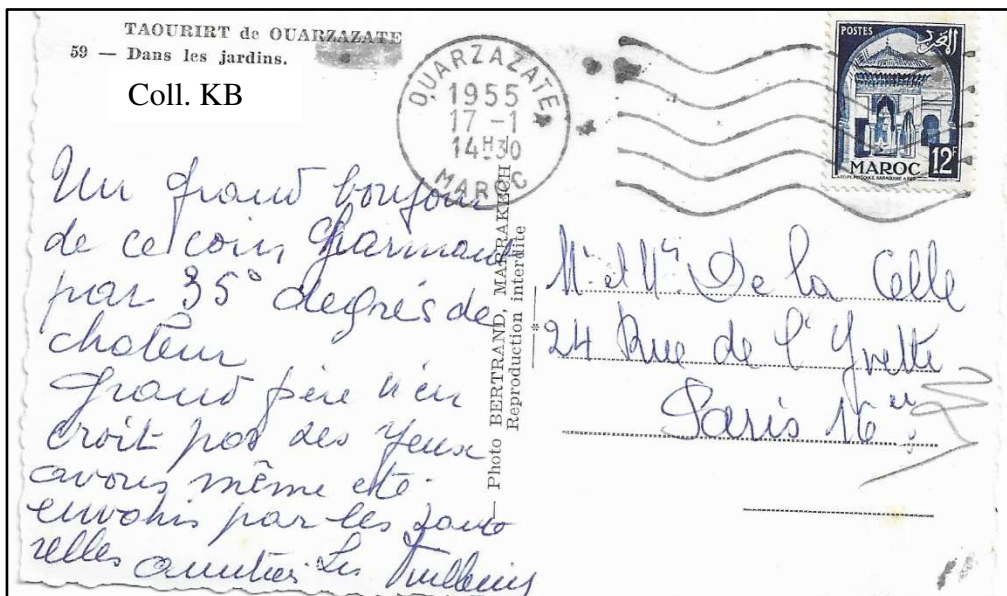 TAOURIRT de OUARZAZATE
59 — Dans les jardins.
Coll. KB
OUARZAZATE
1955
17 -1
14H30
MAROC
POSTES
المغرب
MAROC
12F
Un grand bonjour
de ce coin charmant
par 35° degrés de
chaleur
Grand père n'en
croit pas ses yeux
avons même été
envahis par les saute
relles amitiés Les
— Photo BERTRAND, MARRAKECH
Reproduction interdite
Mr et Me De la Celle
24 Rue de l'Yvette
Paris 16e